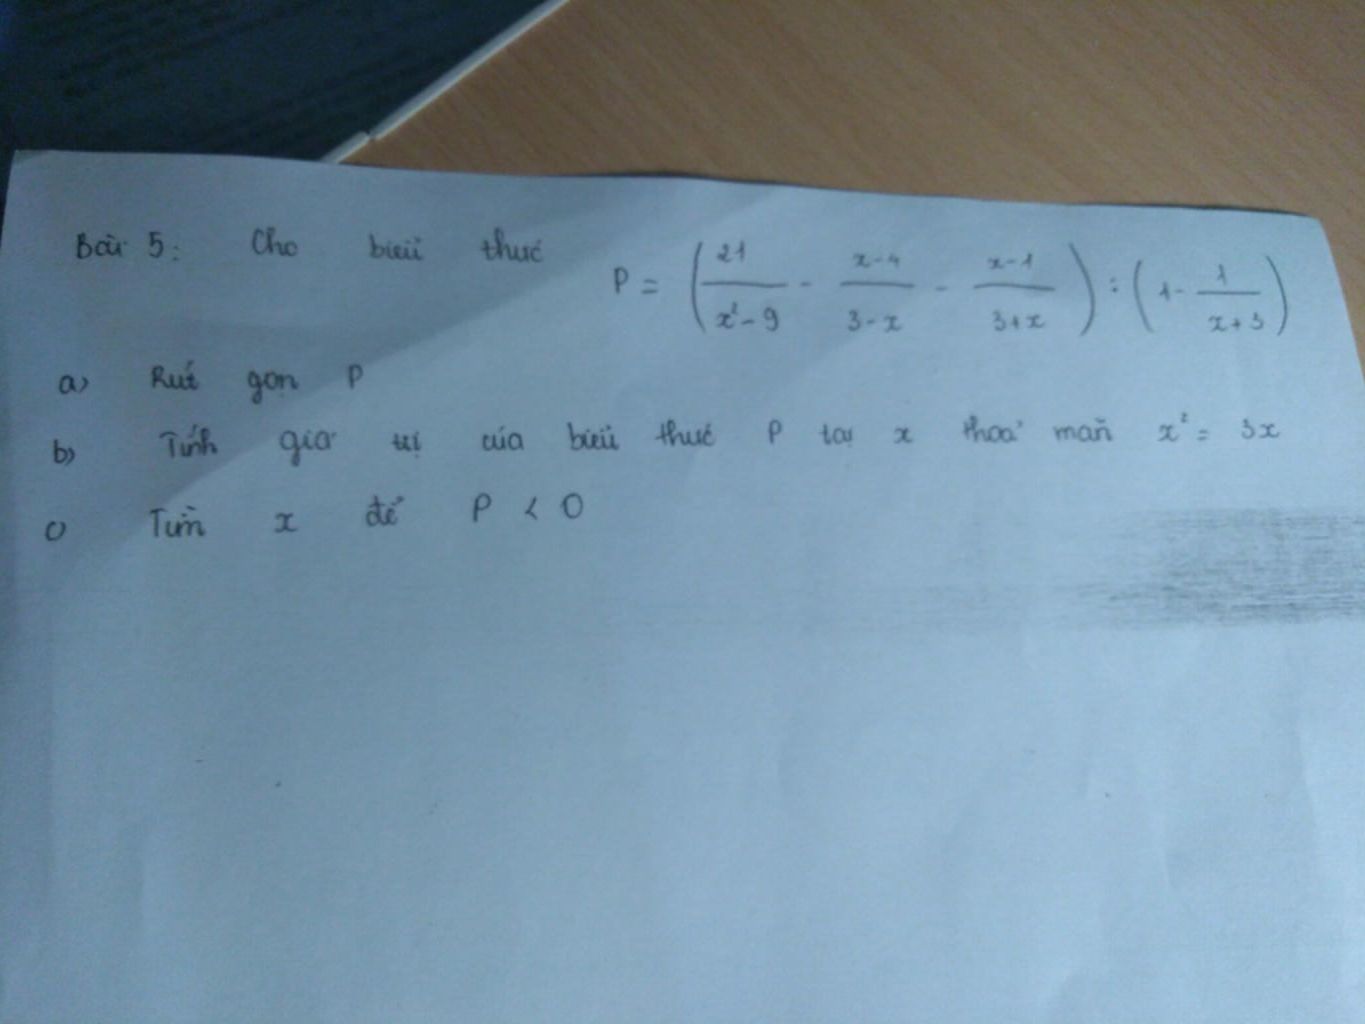 Bài 5: Cho biểu thức P = ( 21/(x² - 9) - (x-4)/(3-x) - (x-1)/(3+x) ) : ( 1 - 1/(x+3) )
a) Rút gọn P
b) Tính giá trị của biểu thức P tại x thoả mãn x² = 3x
c) Tìm x để P < 0